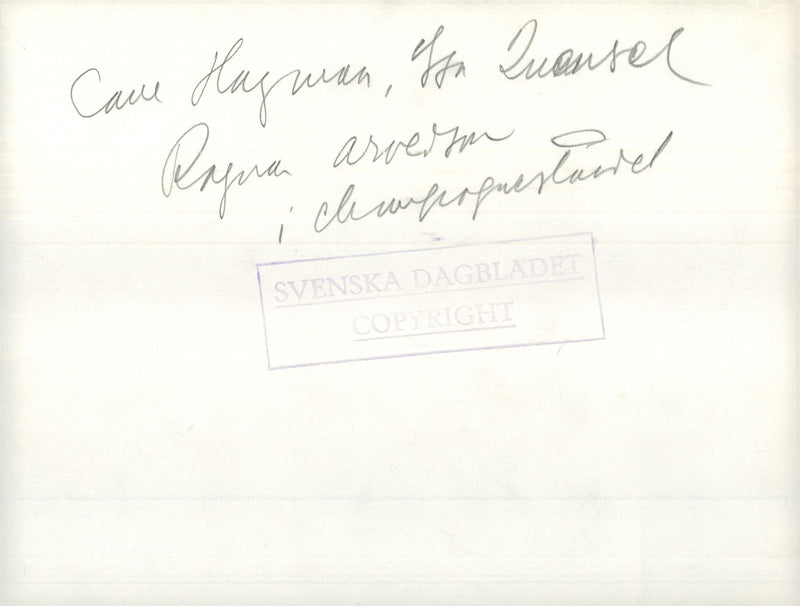 Carl Hagman, Isa Quensel
Ragnar Arvedson
i champagneståndet
SVENSKA DAGBLADET
COPYRIGHT